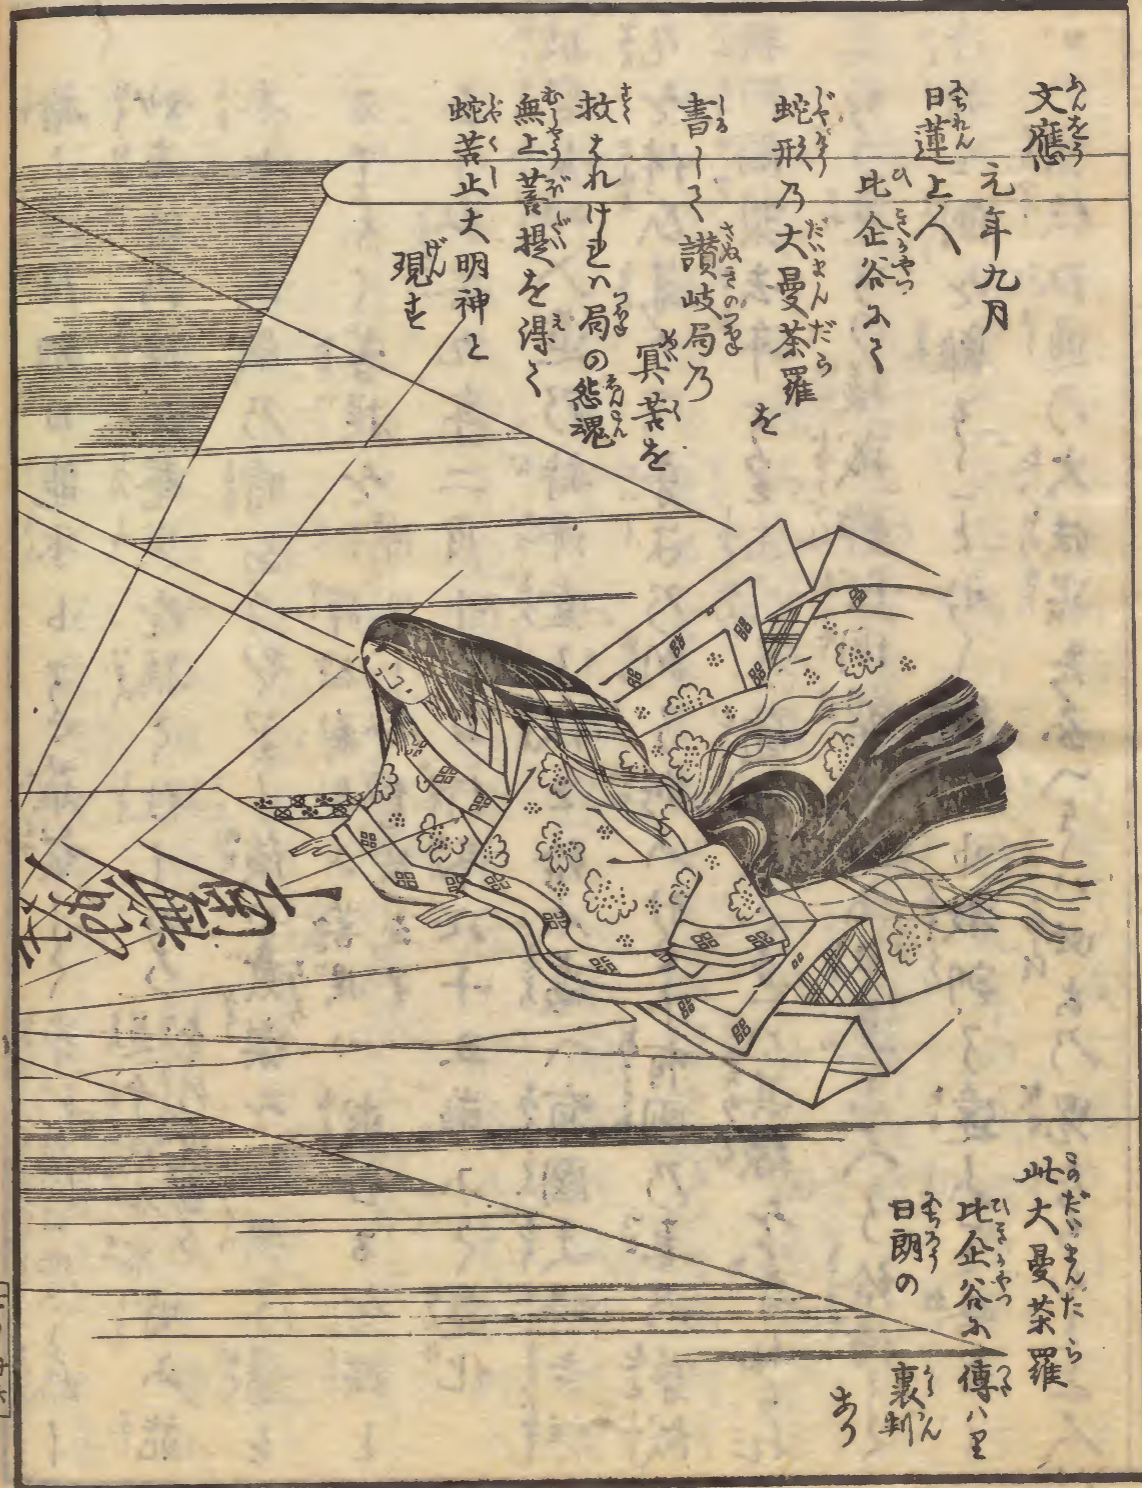 文應
元年九月
日蓮上人
比企谷にて
蛇形乃大曼荼羅
を
書して讃岐局乃
冥苦を
救はれけれハ局の怨魂
無上菩提を得て
蛇苦止大明神と
現す
此大曼荼羅
比企谷に傳ハり
日朗の裏判
あり